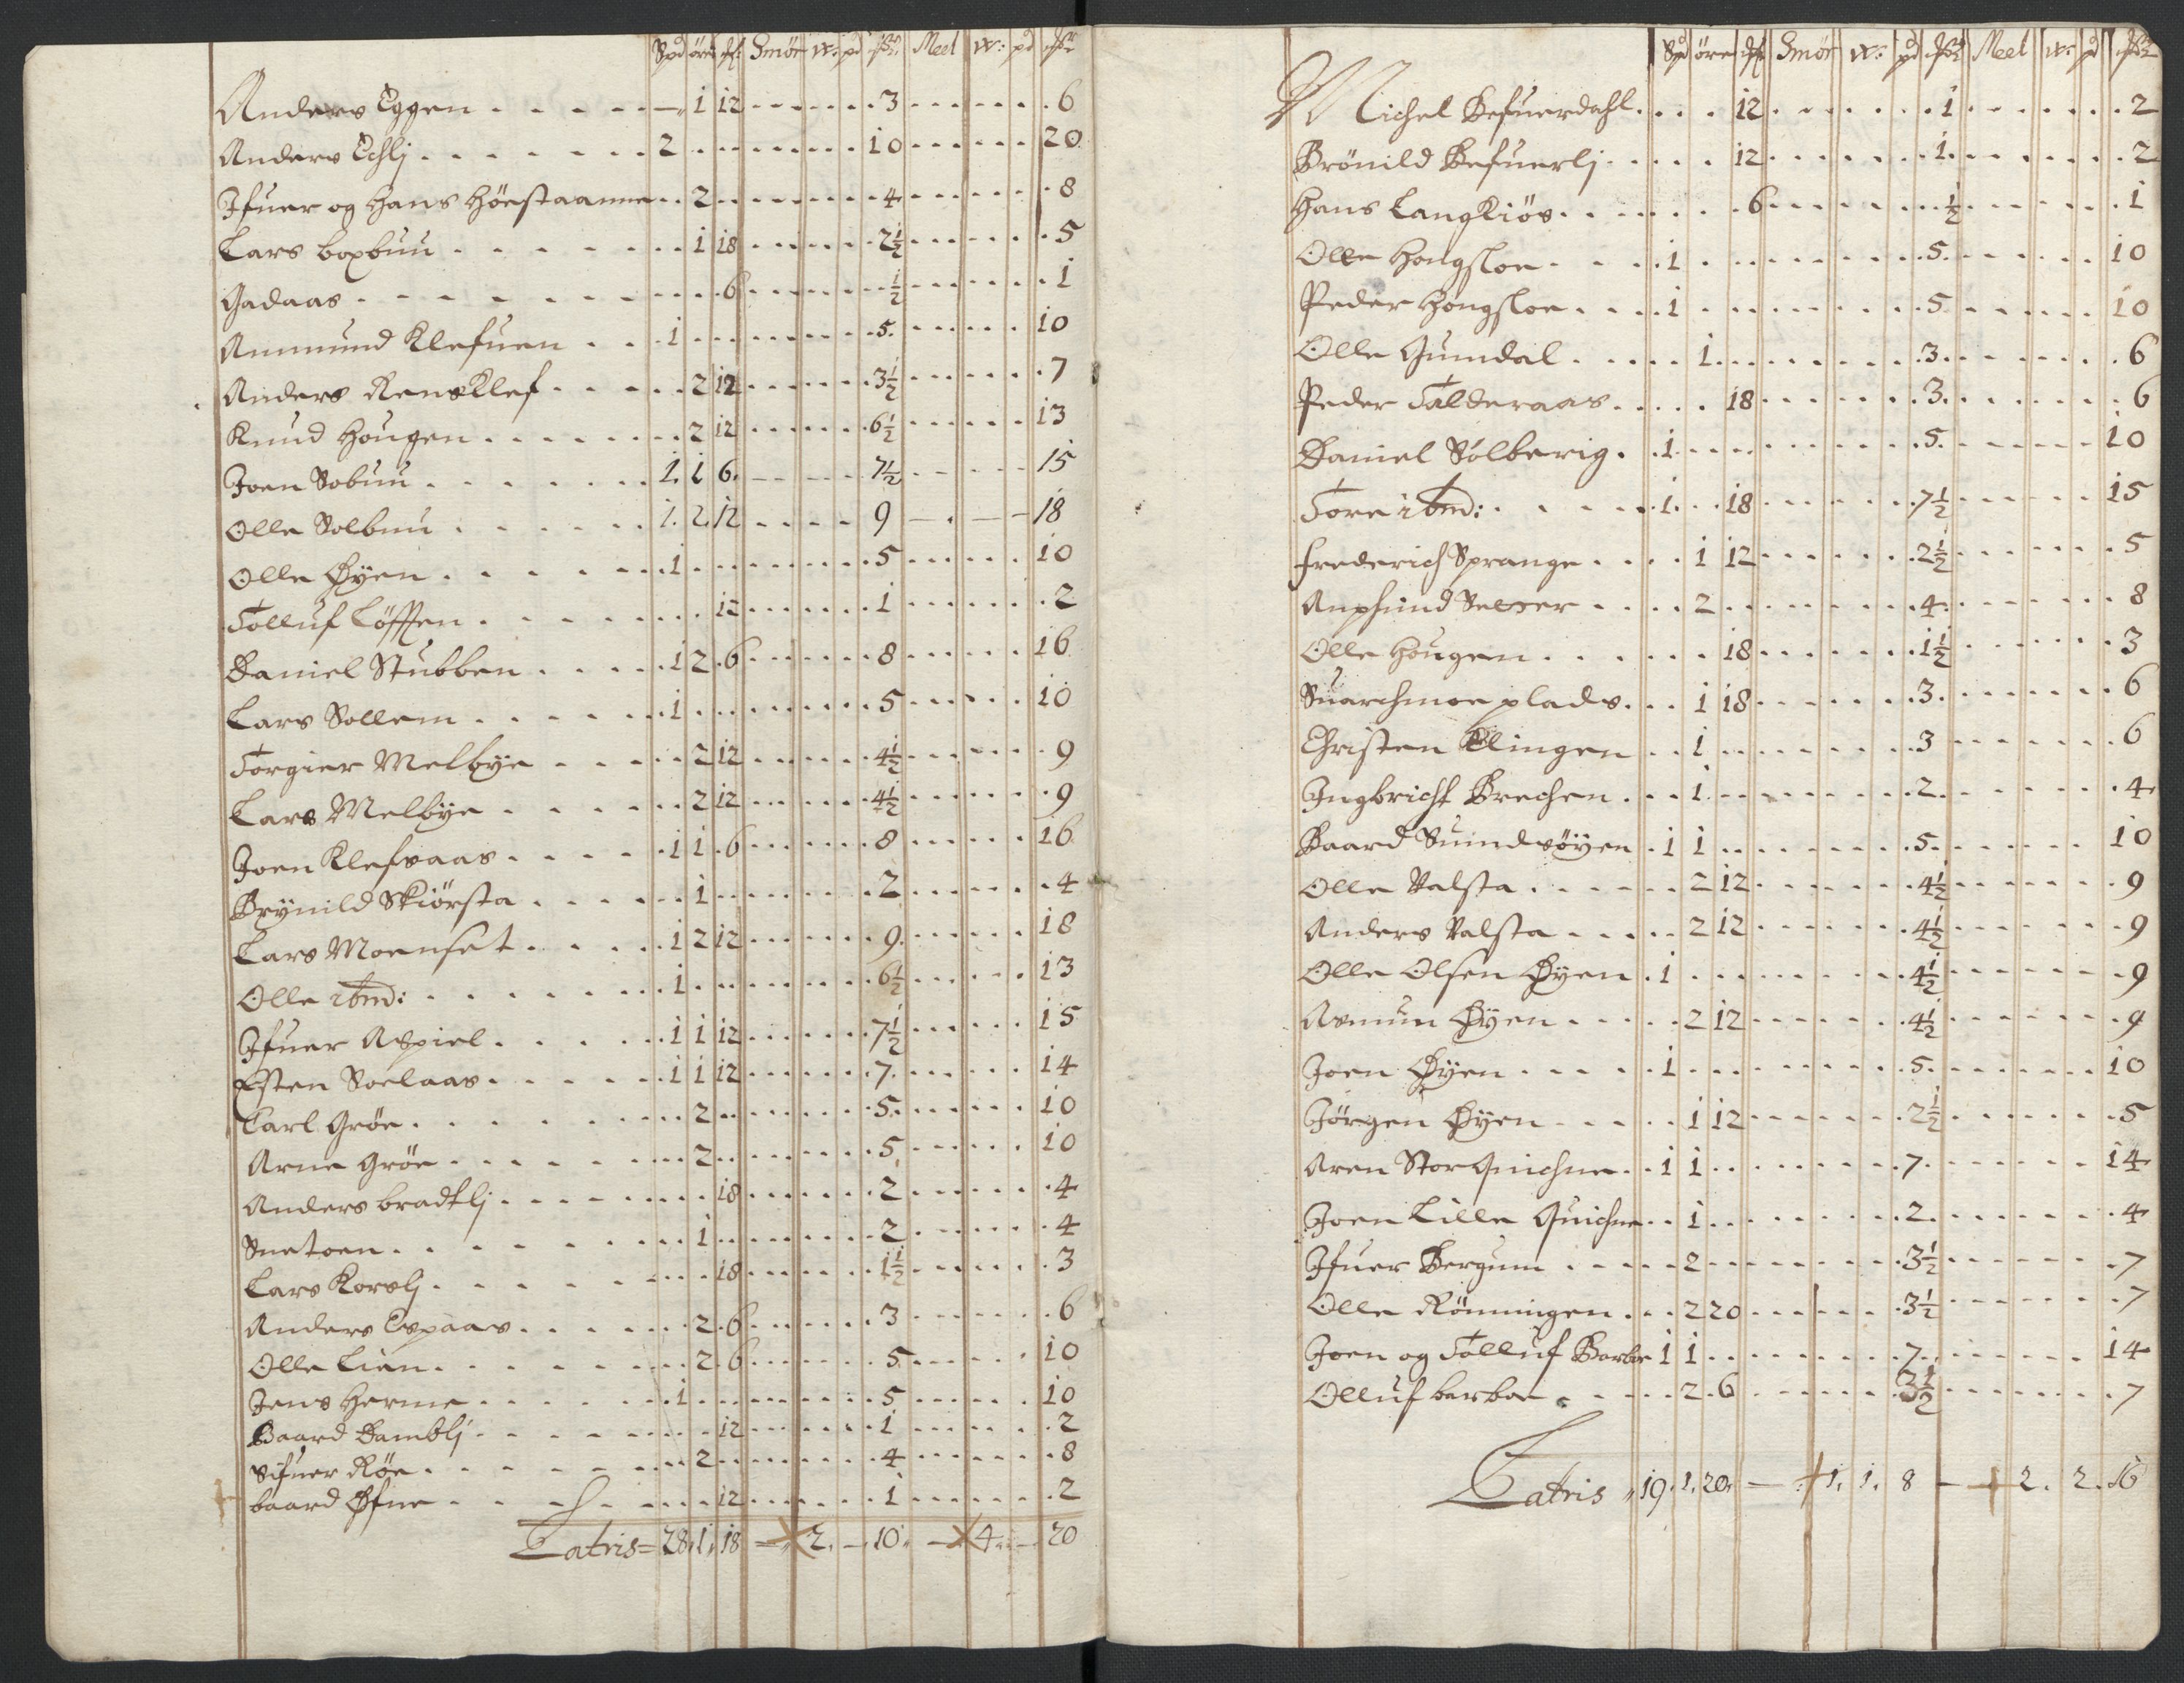 Spd öre Smör w: pd Meel w: pd
Anders Eggen - 1 12 3 6
Anders Echlj 2 10 20
Jfuer og Hans Höestaanne 2 4 8
Lars boxbuu 1 18 2½ 5
Gadaas 6 ½ 1
Ammund Klefuen 1 5 10
Anders RensKlef 2 12 3½ 7
Knud Hougen 2 12 6½ 13
Joen Sobuu 1 1 6 7½ 15
Olle Solbuu 1 2 12 9 18
Olle Øyen 1 5 10
Tolluf Löffen 12 1 2
Daniel Stubben 1 2 6 8 16
Lars Sollem 1 5 10
Torgier Melbye 2 12 4½ 9
Lars Melbye 2 12 4½ 9
Joen Klefsaas 1 1 6 8 16
Brynild Skiörsta 1 2 4
Lars Moenset 1 2 12 9 18
Olle ibmd: 1 6½ 13
Jfuer Aspiel 1 1 12 7½ 15
Esten Soelaas 1 1 12 7 14
Carl Gröe 2 5 10
Arne Gröe 2 5 10
Anders bradtlj 18 2 4
Snetoen 1 2 4
Lars Korslj 18 1½ 3
Anders Espaas 2 6 3 6
Olle Lien 2 6 5 10
Jens Herme 1 5 10
Baard Bamblj 12 1 2
Sifuer Röe 2 4 8
baard Øfne 12 1 2
Latris = 28 1 18 - 2 - 10 - 4 - 20
Spd öre Smör w: pd Meel w: pd
Michel Befuerdahl 12 1 2
Brönild Befuerlj 12 1 2
Hans LangKiös 6 ½ 1
Olle Hongsloe 1 5 10
Peder Hongsloe 1 5 10
Olle Gumdal 1 3 6
Peder Talderaas 18 3 6
Daniel Sölberig 1 5 10
Tore ibmd: 1 18 7½ 15
Frederich Sprange 1 12 2½ 5
Anphind Seltzer 2 4 8
Olle Hougen 18 1½ 3
Suarchmoe plads 1 18 3 6
Christen Klingen 1 3 6
Ingbricht Brechen 1 2 4
Baard Suindsöyen 1 1 5 10
Olle Valsta 2 12 4½ 9
Anders Valsta 2 12 4½ 9
Olle Olsen Øyen 1 4½ 9
Asmun Øyen 2 12 4½ 9
Joen Øyen 1 5 10
Jörgen Øyen 1 12 2½ 5
Aren Stor Quichne 1 1 7 14
Joen Lille Quichne 1 2 4
Jfuer Bergum 2 3½ 7
Olle Rönningen 2 20 3½ 7
Joen og Tolluf Barboe 1 1 7 14
Olluf barboe 2 6 3½ 7
Latris 19. 1. 20. - 1. 1. 8 - 2. 2. 16